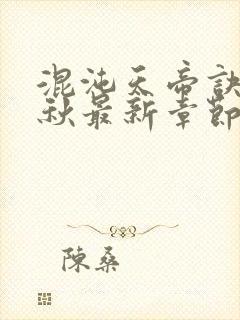 混沌天帝訣
秋最新章節
陳桑